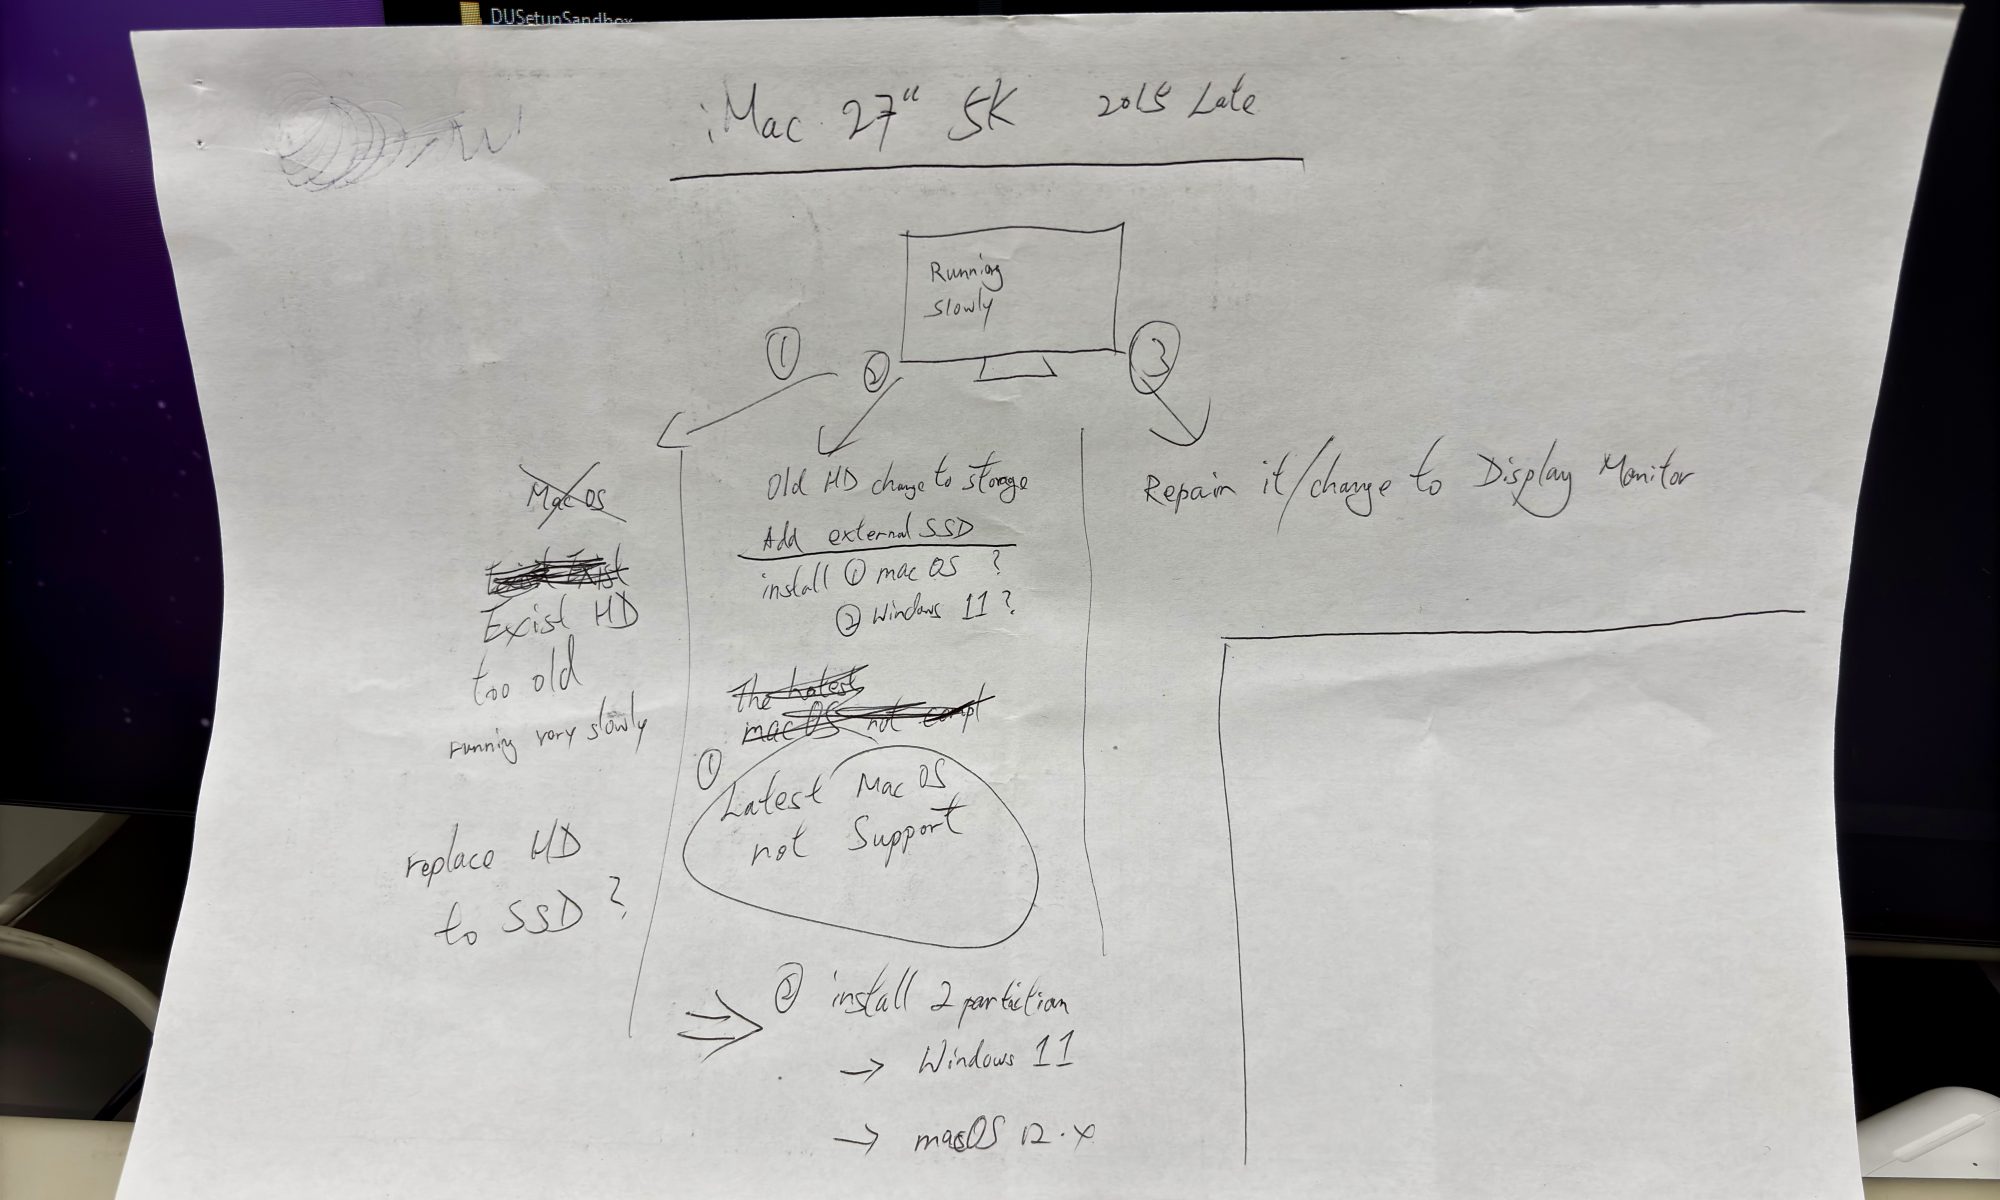 DUSetupSandbox
iMac 27" 5K 2015 Late
Running
slowly
①
②
③
MacOS
Exist HD
too old
running very slowly
replace HD
to SSD ?
Old HD change to storage
Add external SSD
install ① mac OS ?
② Windows 11 ?
The latest
macOS not compt
①
Latest Mac OS
not Support
② install 2 partition
→ Windows 11
→ macOS 12.x
Repair it/change to Display Monitor